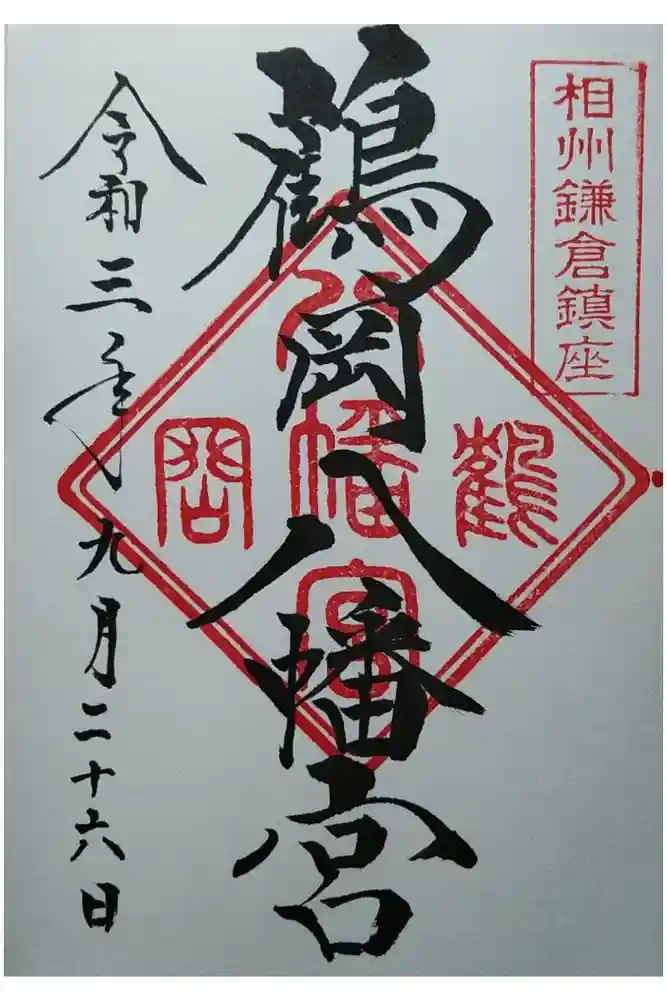 相州鎌倉鎮座
鶴岡八幡宮
鶴
八幡宮
岡
令和三年九月二十六日